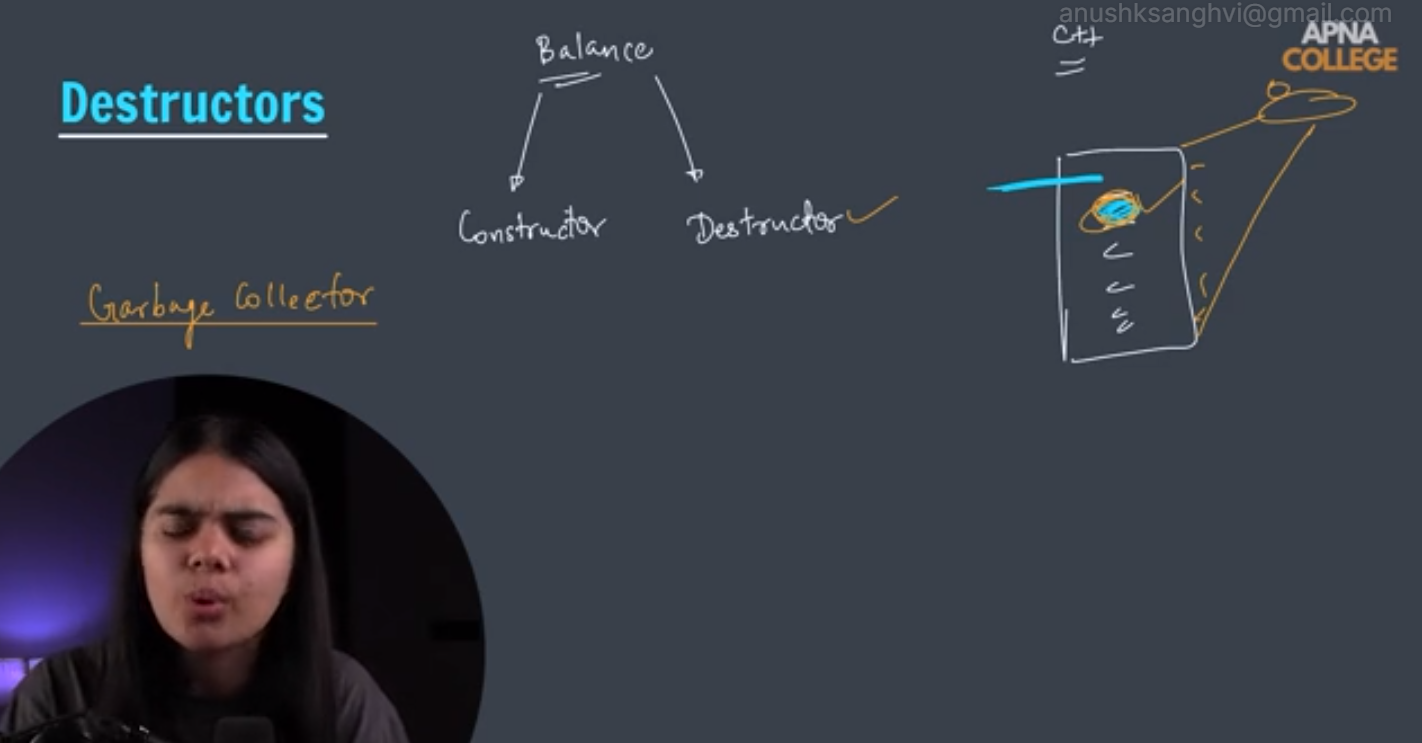 anushksanghvi@gmail.com
C++
APNA
COLLEGE
Balance
Destructors
Constructor
Destructor
Garbage Collector